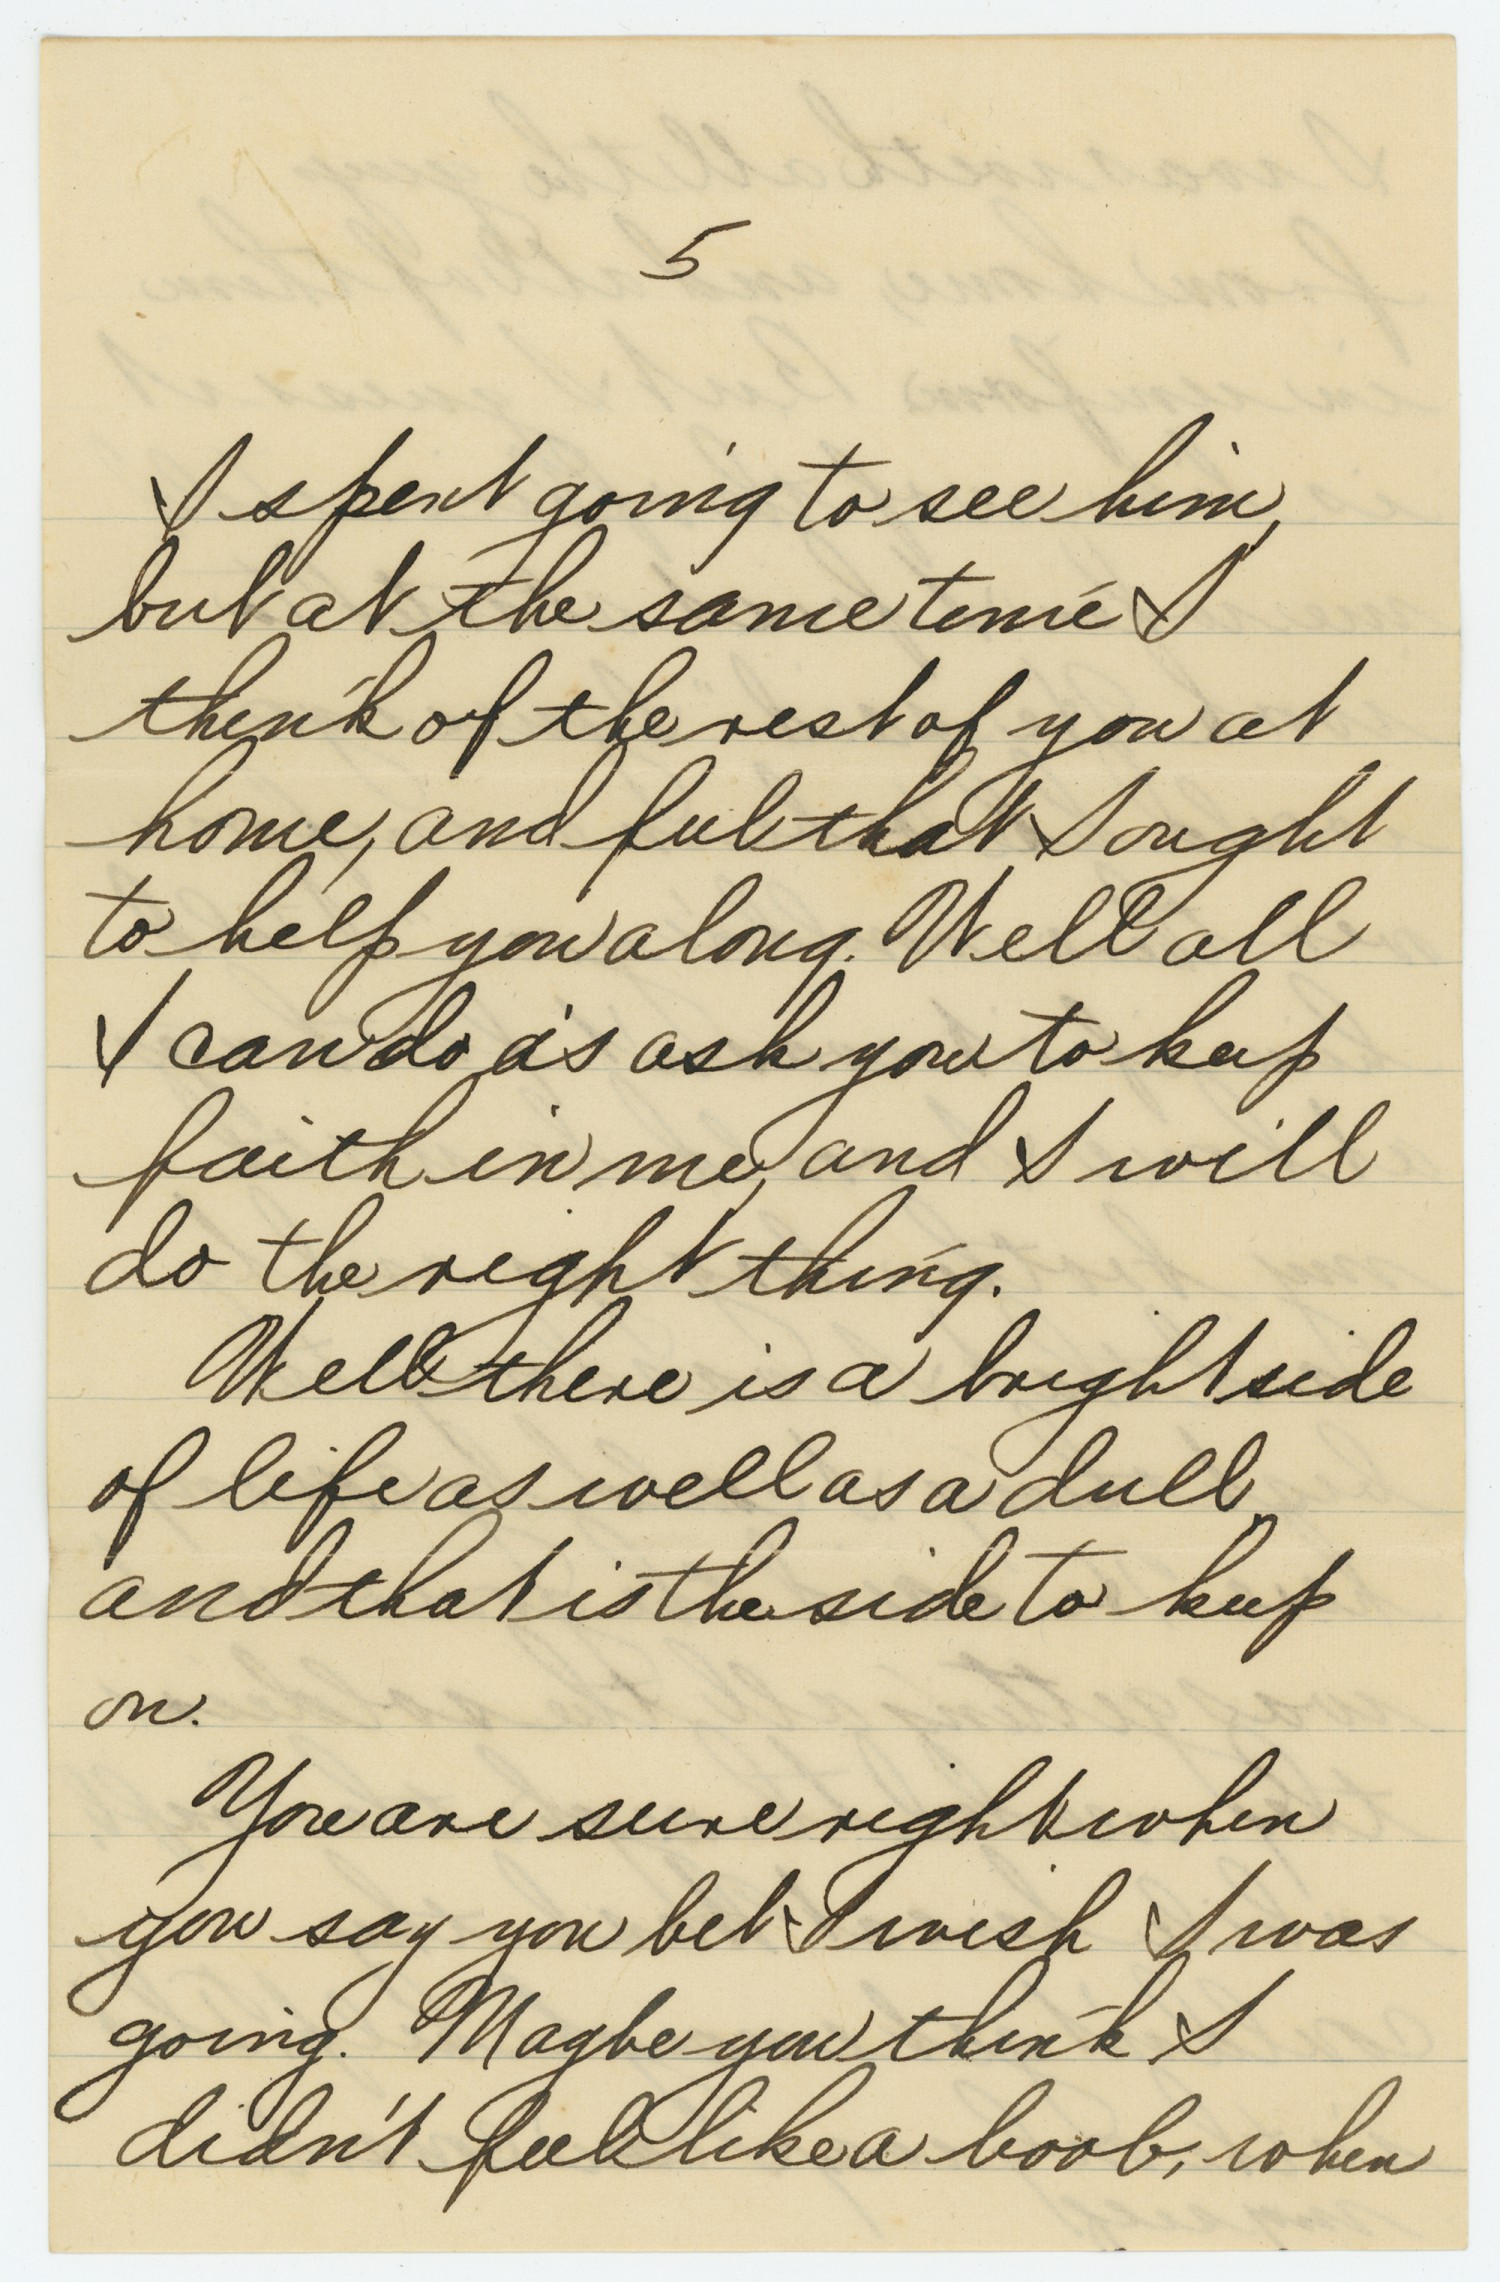 5
I spent going to see him,
but at the same time I
think of the rest of you at
home, and feel that I ought
to help you along. Well all
I can do is ask you to keep
faith in me, and I will
do the right thing.
Well there is a bright side
of life as well as a dull,
and that is the side to keep
on.
You are sure right when
you say you bet I wish I was
going. Maybe you think I
didn't feel like a boob, when